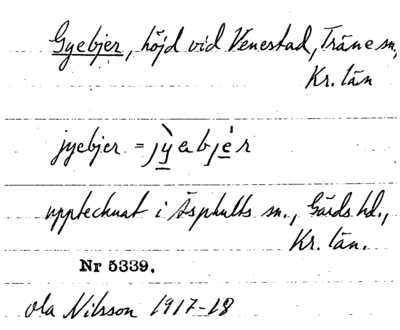 Gyebjer, höjd vid Venestad, Träne sn,
Kr. län
jyebjer = jỳ̲abjé̲r
upptecknat i Äsphults sn., Gärds hd.,
Kr. län.
Nr 5339.
Ola Nilsson 1917-18